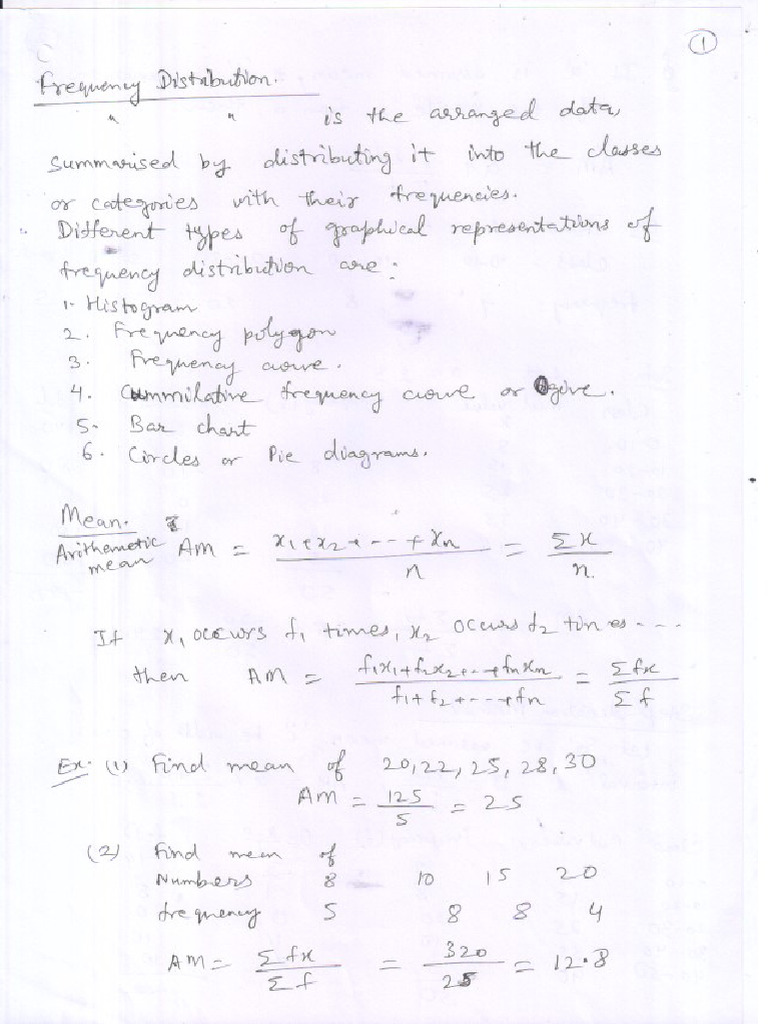 1
Frequency Distribution.
" " is the arranged data,
summarised by distributing it into the classes
or categories with their frequencies.
Different types of graphical representations of
frequency distribution are:
1. Histogram
2. Frequency polygon
3. Frequency curve.
4. Cummilative frequency curve or Ogive.
5. Bar chart
6. Circles or Pie diagrams.
Mean.
Arithemetic mean AM = x₁+x₂+--+xₙ / n = Σx / n.
If x₁ occurs f₁ times, x₂ occurs f₂ times ---
then AM = f₁x₁+f₂x₂+--+fₙxₙ / f₁+f₂+---+fₙ = Σfx / Σf
Ex. (1) Find mean of 20, 22, 25, 28, 30
AM = 125 / 5 = 25
(2) Find mean of
Numbers 8 10 15 20
frequency 5 8 8 4
AM = Σfx / Σf = 320 / 25 = 12.8